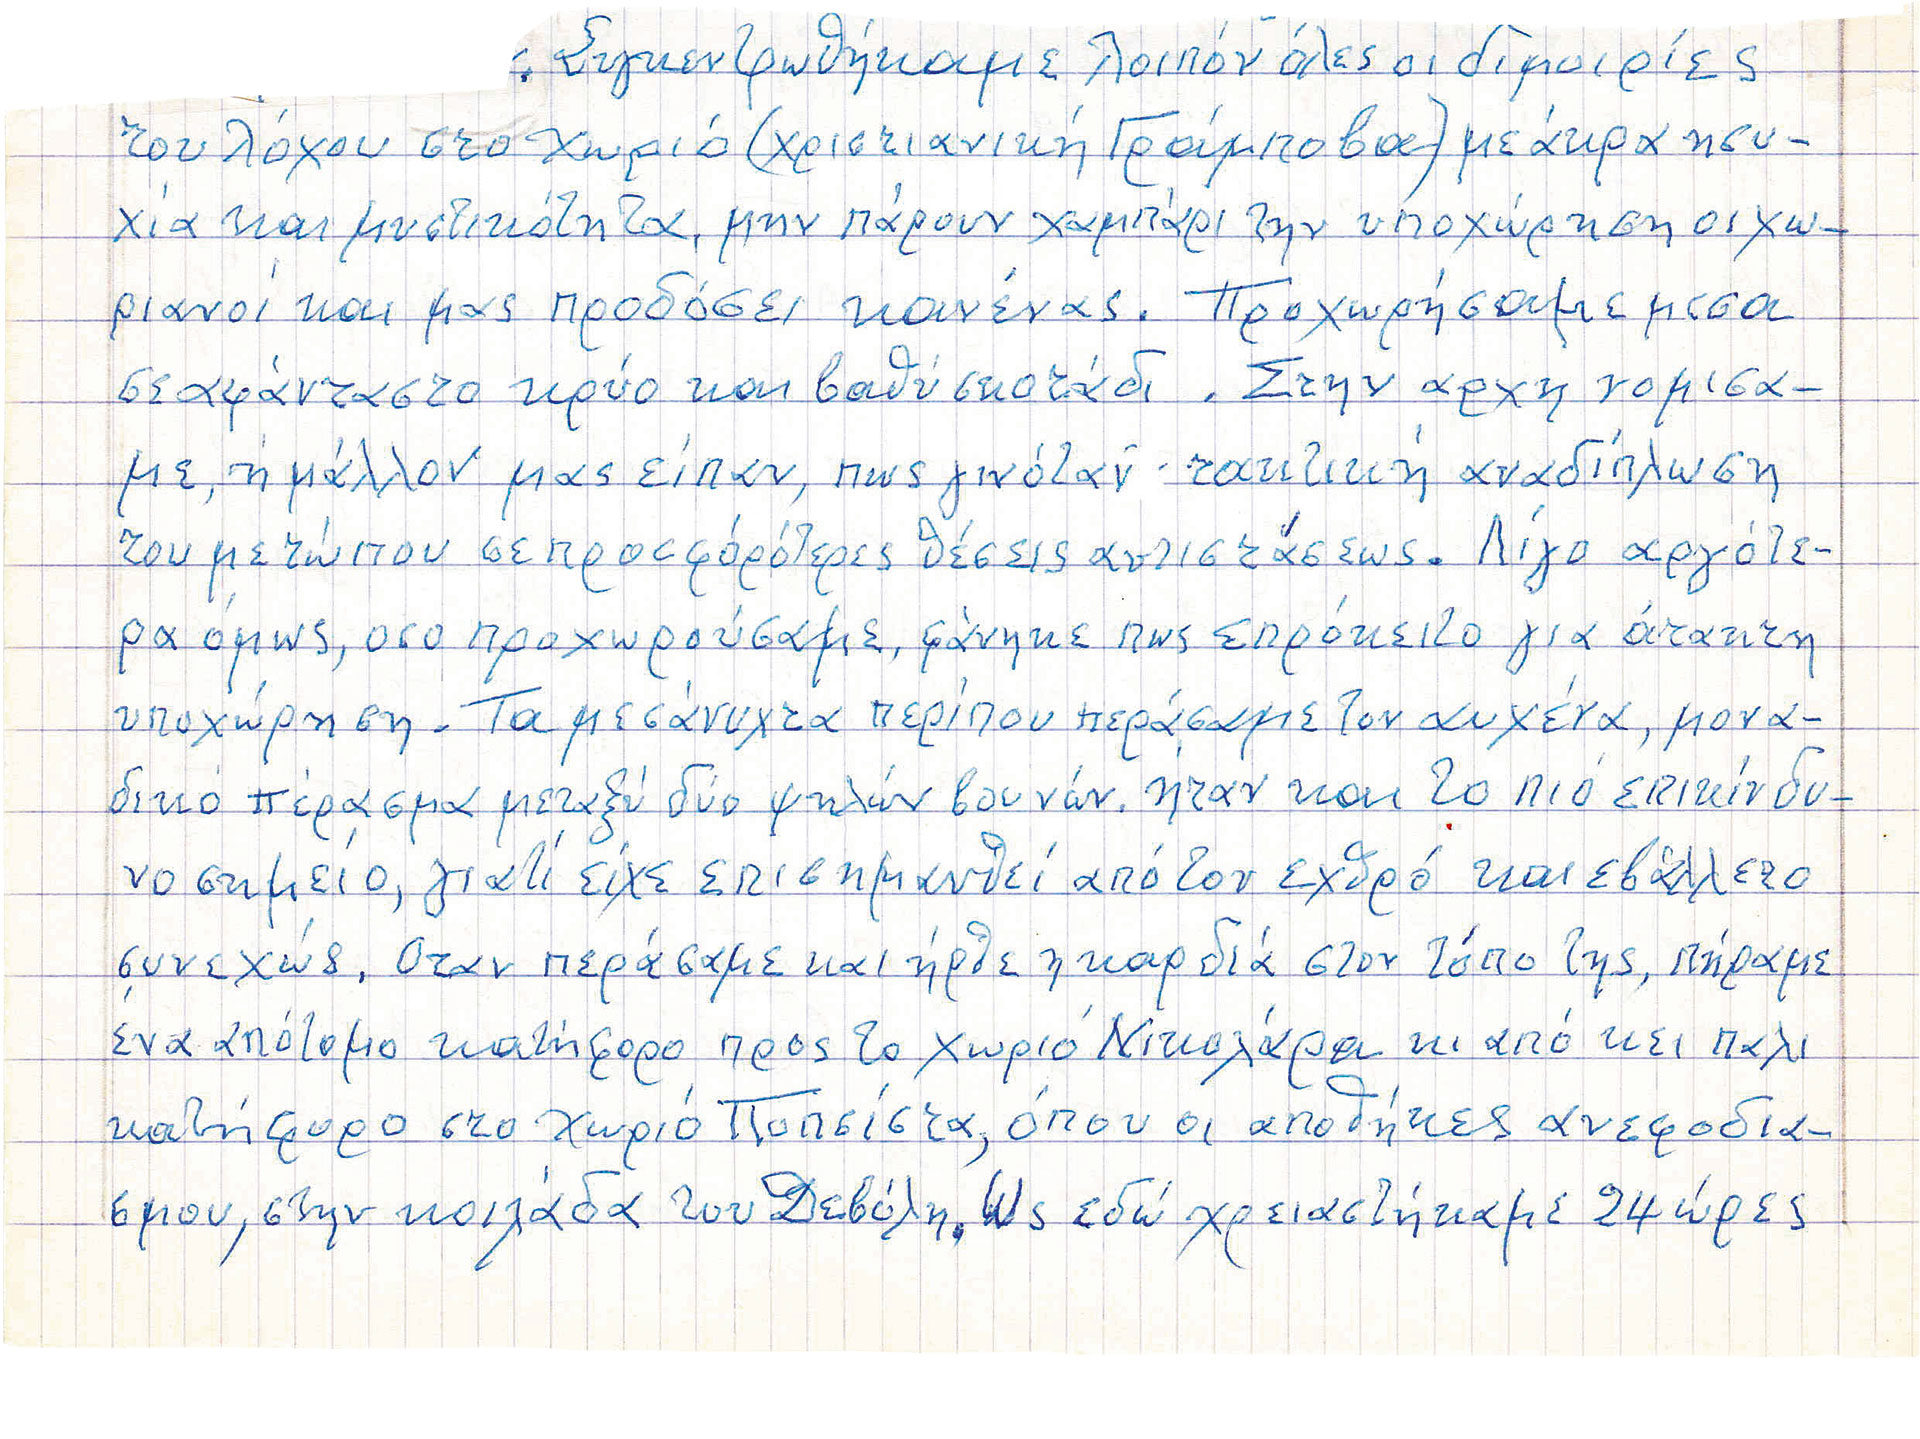 . Συγκεντρωθήκαμε λοιπόν όλες οι διμοιρίες
του λόχου στο χωριό (χριστιανική Γράμποβα) με άκρα ησυ-
χία και μυστικότητα, μην πάρουν χαμπάρι την υποχώρηση οι χω-
ριανοί και μας προδόσει κανένας. Προχωρήσαμε μεσα
σε αφάνταστο κρύο και βαθύ σκοτάδι. Στην αρχη νομισα-
με, ή μάλλον μας είπαν, πως γινόταν τακτική αναδίπλωση
του μετώπου σε προσφόρότερες θέσεις αντιστάσεως. Λίγο αργότε-
ρα όμως, οσο προχωρούσαμε, φάνηκε πως επρόκειτο για άτακτη
υποχώρηση. Τα μεσάνυχτα περίπου περάσαμε τον αυχένα, μονα-
δικό πέρασμα μεταξύ δύο ψηλών βουνών. ήταν και το πιό επικίνδυ-
νο σημείο, γιατί είχε επισημανθεί από τον εχθρό και εβάλλετο
συνεχώς. Οταν περάσαμε και ήρθε η καρδιά στον τόπο της, πήραμε
ένα απότομο κατήφορο προς το χωριό Νικολάρα κι από κει παλι
κατήφορο στο χωριό Ποπσίστα, όπου οι αποθήκες ανεφοδια-
σμου, στην κοιλάδα του Δεβόλη. Ως εδώ χρειαστήκαμε 24 ώρες